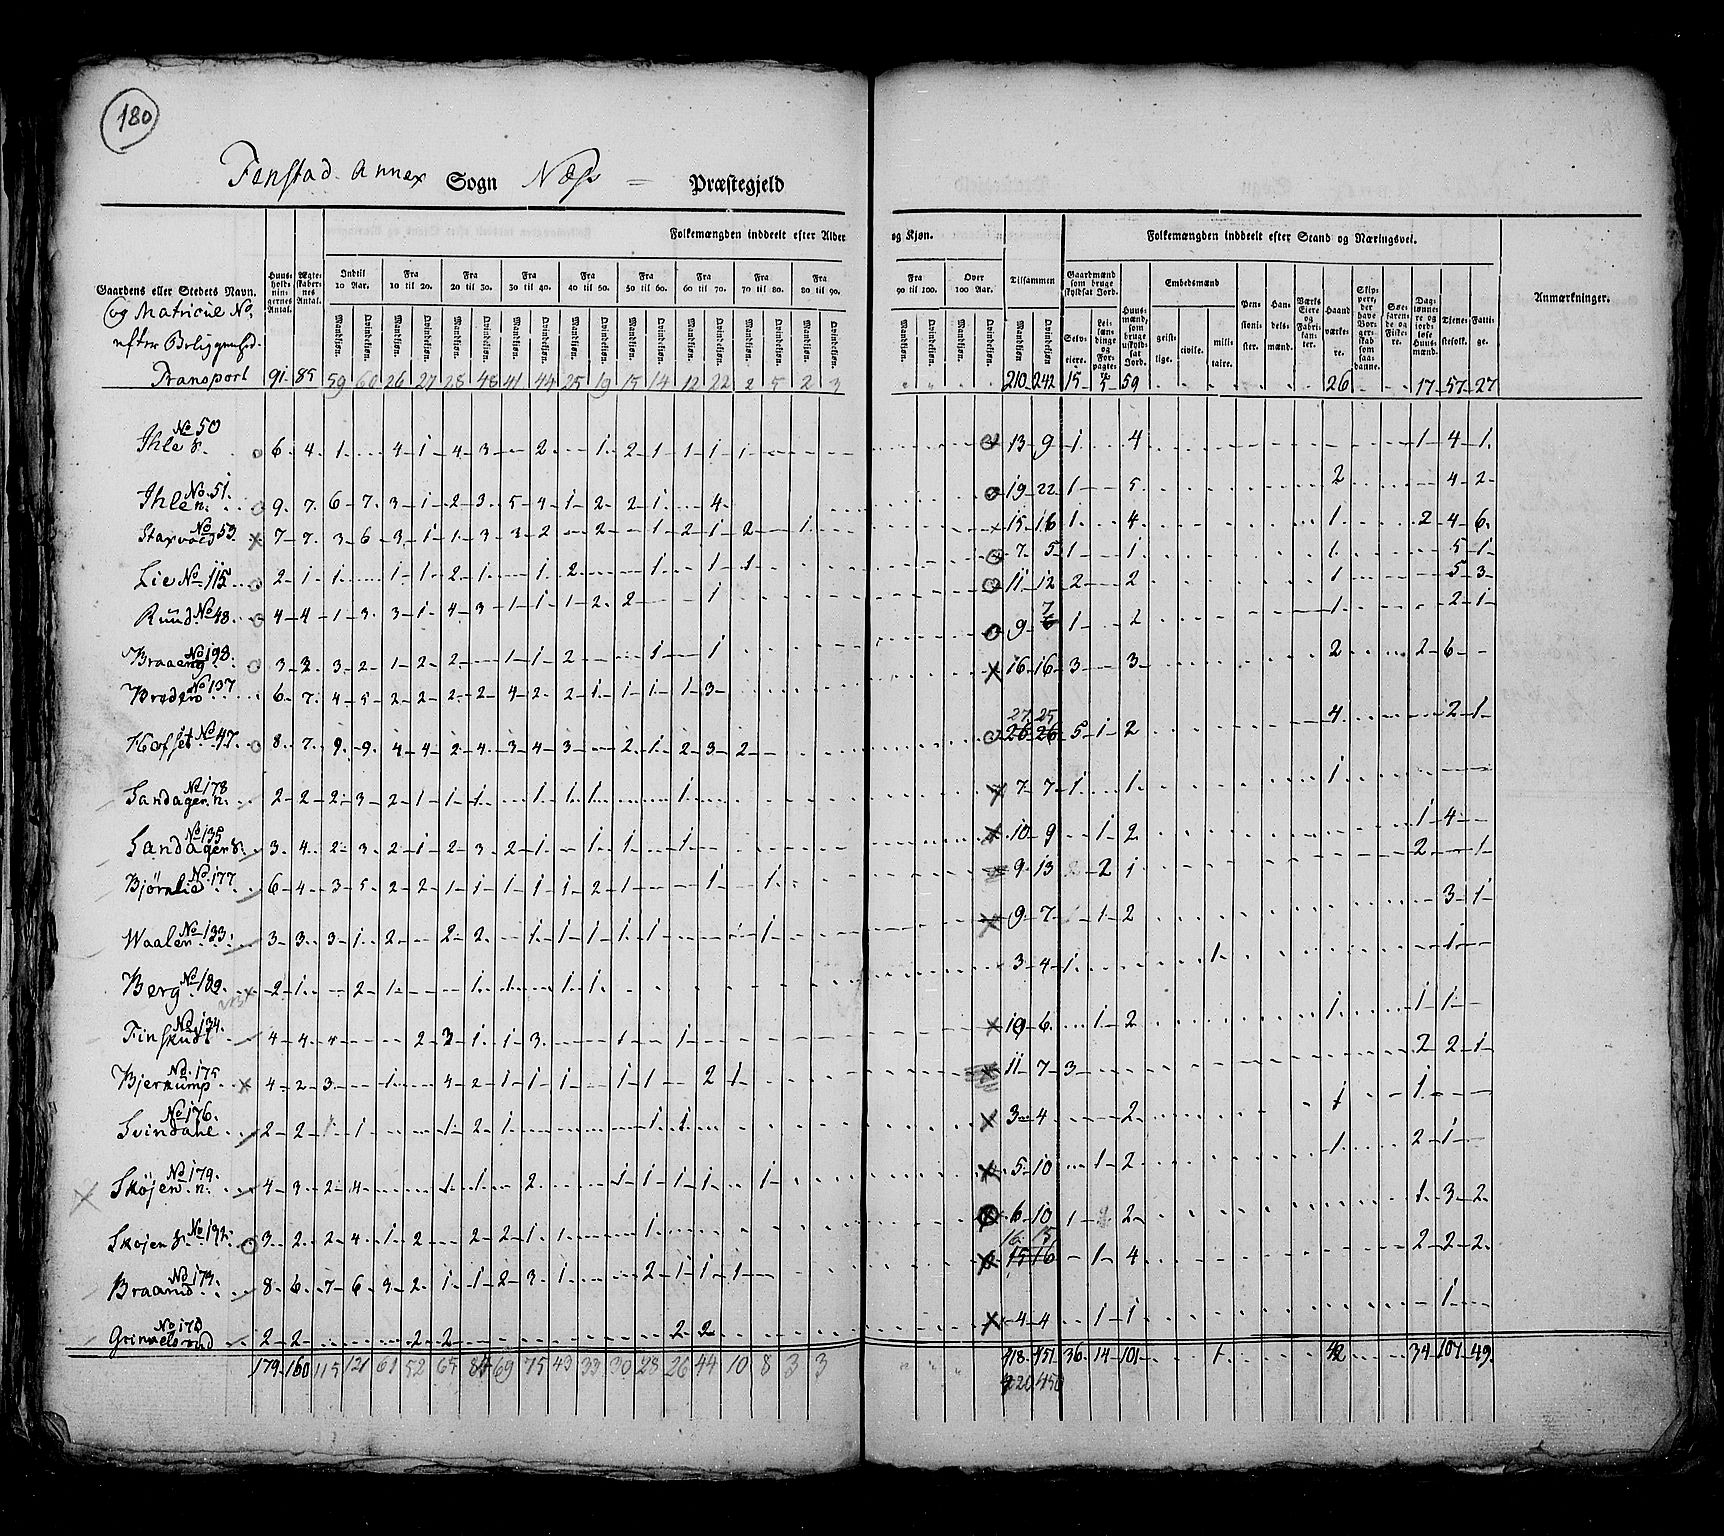 180
Fenstad Annex Sogn Næss = Præstegjeld
Folkemængden inddeelt efter Alder og Kjøn.
Folkemængden inddeelt efter Stand og Næringsvei.
Gaardens eller Stedets Navn.
og Matricul No.
efter Beliggenhed.
Huusholdningernes Antal.
Ægteskabernes Antal.
Indtil 10 Aar.
Fra 10 til 20.
Fra 20 til 30.
Fra 30 til 40.
Fra 40 til 50.
Fra 50 til 60.
Fra 60 til 70.
Fra 70 til 80.
Fra 80 til 90.
Fra 90 til 100.
Over 100 Aar.
Tilsammen
Mandkjøn. Qvindekjøn.
Gaardmænd som bruge skyldsat Jord.
Selveiere.
Leilændinge og Forpagtere.
Huusmænd, som bruge uskyldsat Jord.
Embedsmænd
geistlige. civile. militaire.
Pensionister.
Handelsmænd.
Værks Eiere og Fabrikanter.
Haandværkere.
Skippere, der have Borgerskab som saadanne.
Søefarende og Fiskere.
Daglønnere og jordløse Huusmænd.
Tjenestefolk.
Fattige.
Anmærkninger.
Transport 91 85 59 60 26 27 28 48 41 44 25 19 15 14 12 22 2 5 2 3 210 242 15 5 59 26 17 57 27
No 50
Ihle S. 6 4 1 4 1 4 3 2 1 2 1 1 1 1 13 9 1 4 1 4 1
No. 51.
Ihle n. 9 7 6 7 3 1 2 3 5 4 1 2 2 1 4 19 22 1 5 2 4 2
No 53
7 7 3 6 3 1 1 3 3 2 2 1 2 1 2 1 15 16 1 4 1 2 4 6
Lie No 115 2 1 1 1 1 2 1 1 2 1 1 1 7 5 1 1 1 5 1
Ruud No 48. 4 4 1 3 3 1 4 3 1 1 1 2 2 1 11 12 2 2 1 5 3
No 198
Braaeng 3 3 3 2 1 2 2 1 1 2 1 1 9 7 6 1 2 1 2 1
No 137
6 7 4 5 2 2 2 2 4 2 2 1 1 1 1 3 16 16 3 3 2 2 6
No 47. 8 7 9 9 4 4 2 4 3 4 3 2 1 2 3 2 27 25 26 26 5 1 2 4 2 1
No 178
Sandager n. 2 2 2 3 2 1 1 1 1 1 1 1 7 7 1 1 1
No 135
Sandager S. 3 4 2 3 2 1 2 3 2 1 1 1 1 10 9 1 2 1 4
No. 177
Bjørnlie 6 4 3 5 2 2 1 1 1 1 1 2 1 1 1 9 13 2 1 2 1
No 133
Waalen 3 3 3 1 2 2 2 1 1 1 1 1 1 9 7 1 2 3 1
Berg No 189 2 1 2 1 1 1 1 1 3 4 1 1 1
No 134.
4 4 4 2 3 1 1 3 1 1 10 6 1 2 1 1 1
No. 175
4 2 3 1 4 2 1 1 1 1 1 2 1 11 7 3 2 2 1
No 176.
Svindahl 2 2 1 1 2 1 1 1 3 4 2 1 1
No 179.
Skøjen n. 4 3 2 4 1 1 2 1 1 1 1 1 5 10 1 2 1 2 1
Skøjen S. 3 2 2 4 1 2 2 2 1 1 1 6 10 1 2 1 3 2
No 173.
Braarud 8 6 7 6 3 2 1 1 2 3 1 2 1 1 1 16 15 15 16 1 4 2 2 2
2 2 2 2 2 2 4 4 1 1 1
179 160 115 121 61 52 65 84 69 75 43 33 30 28 26 44 10 8 3 3 418 451 36 14 101 1 42 34 107 49
420 450